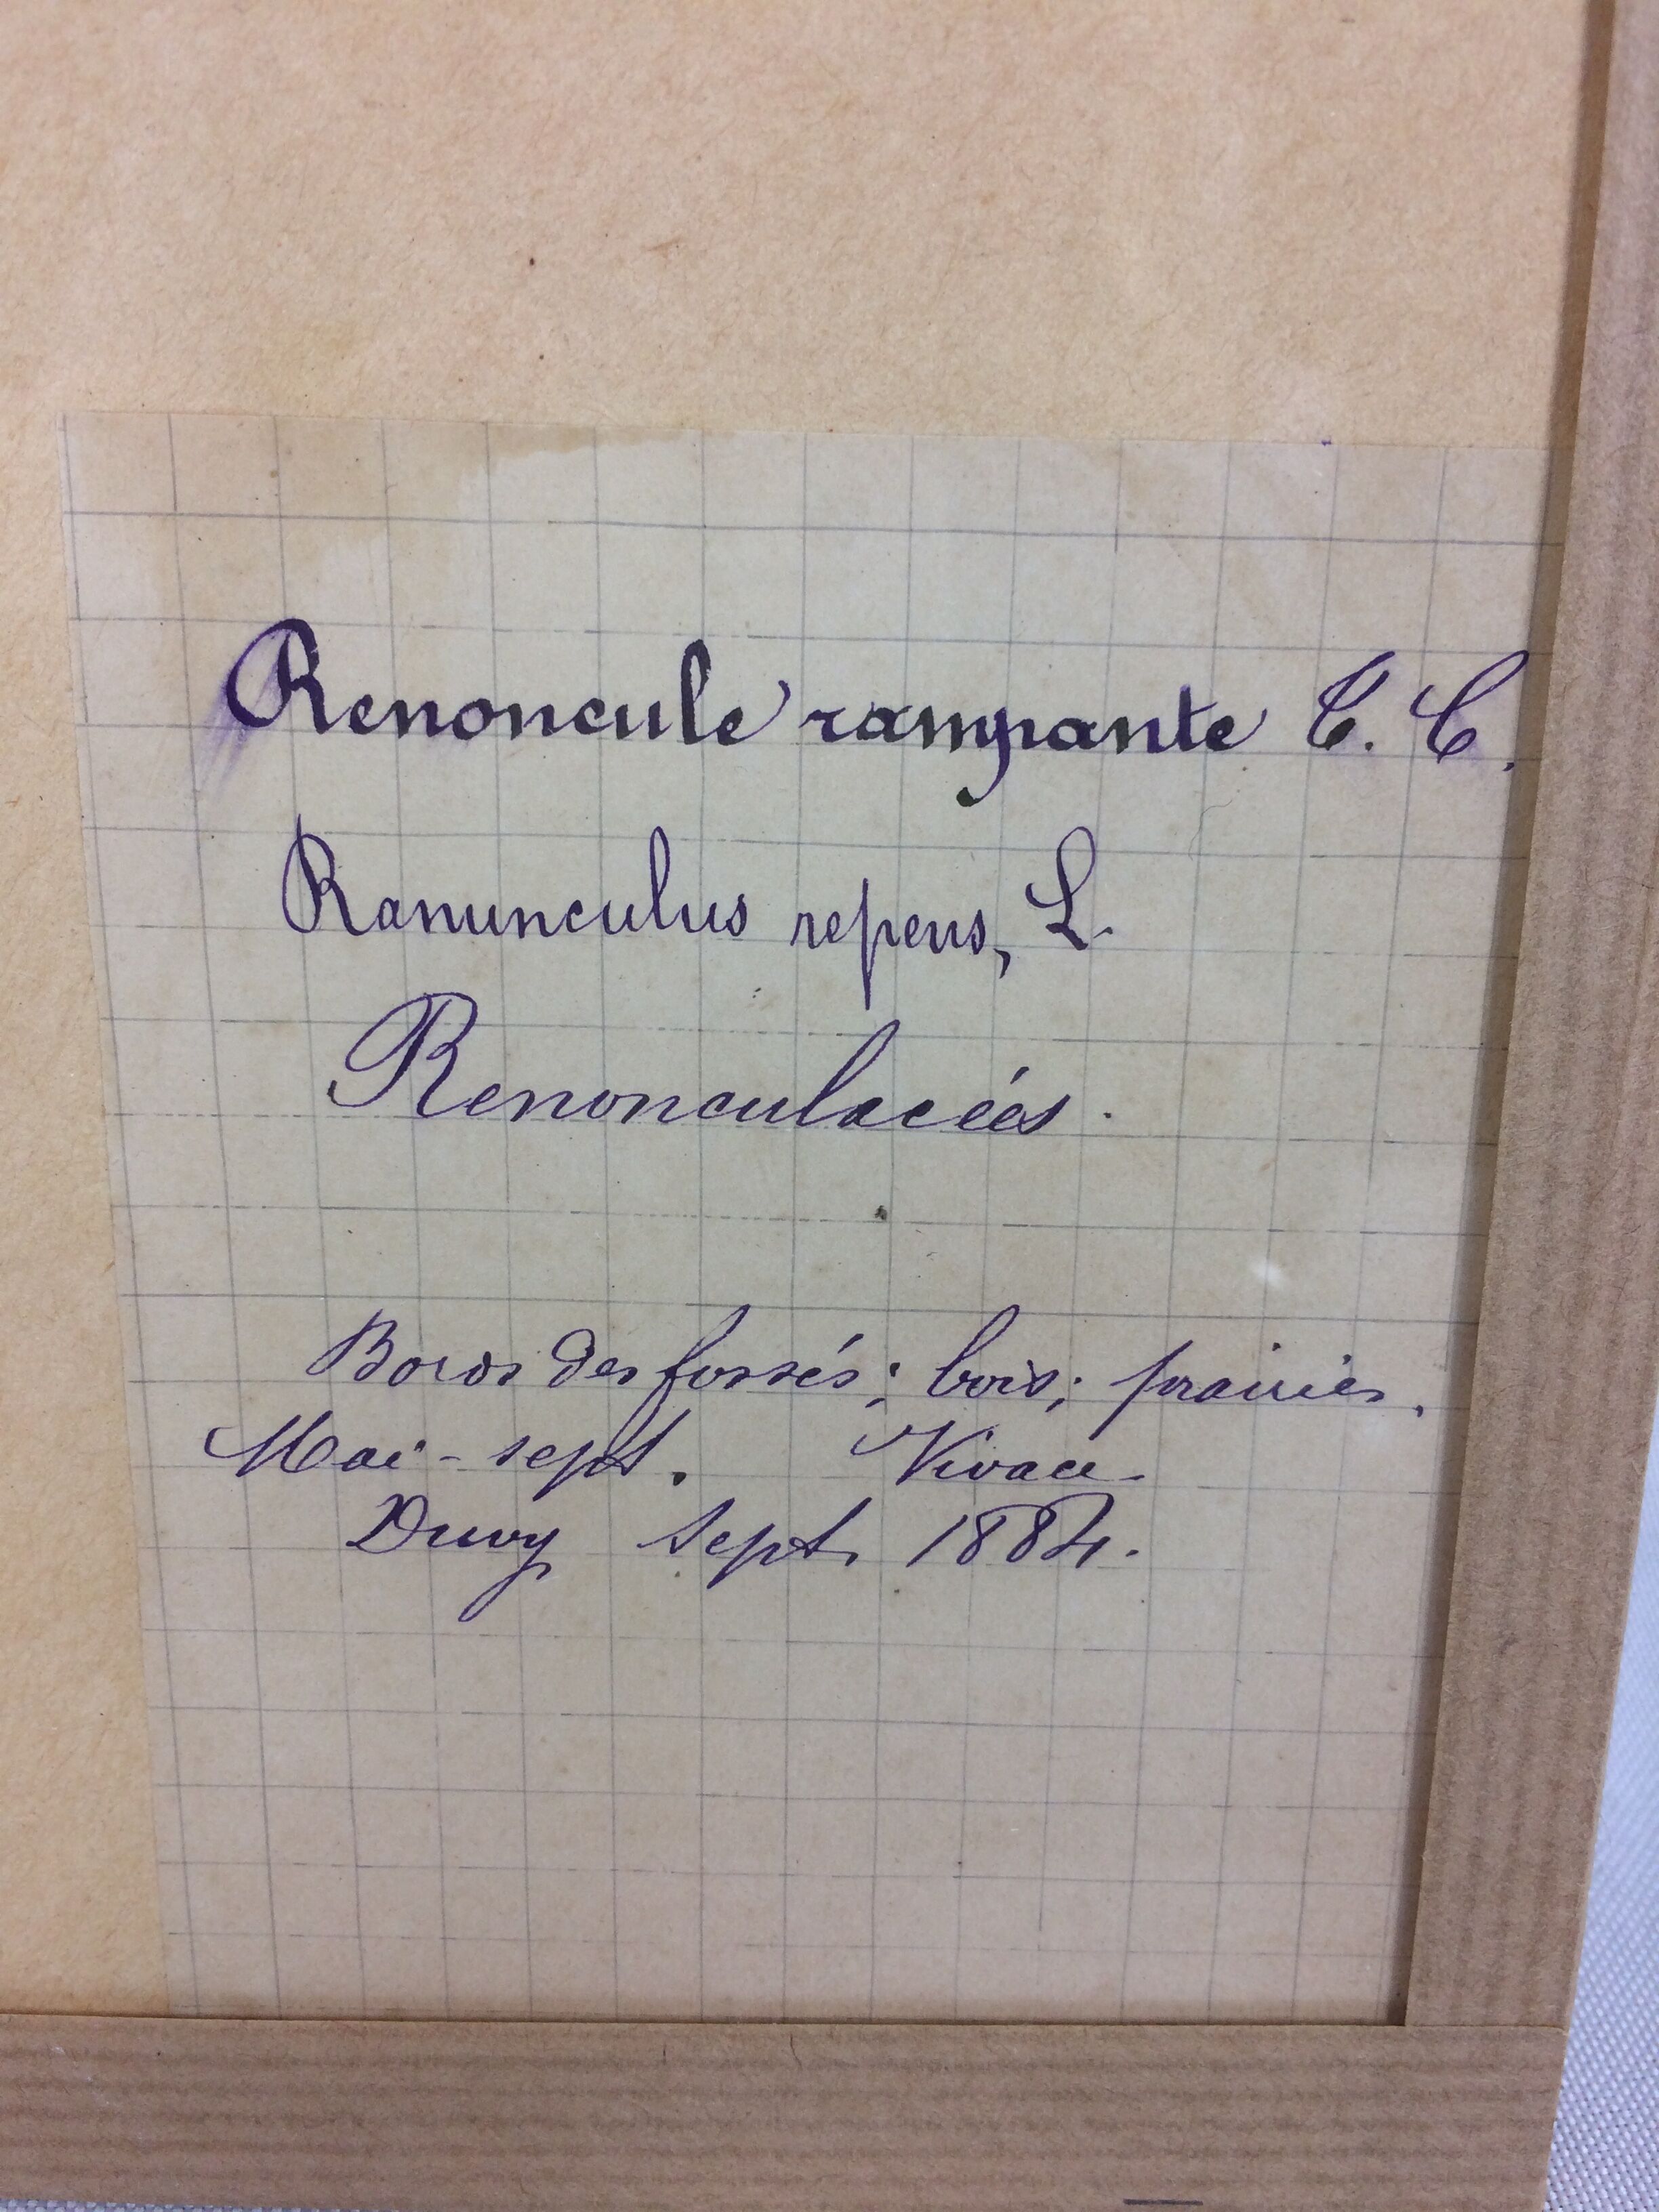 Renoncule rampante C. C.
Ranunculus repens, L.
Renonculacées.
Bords des fossés; bois; prairies.
Mai - sept. Vivace
Duvy sept. 1884.